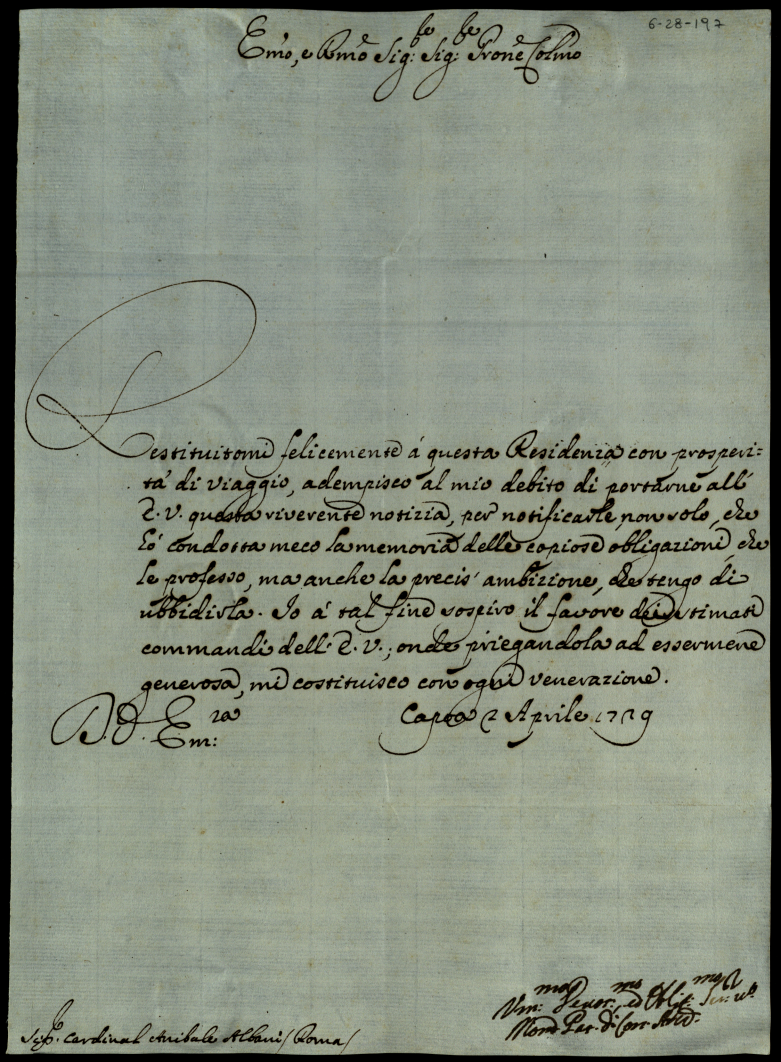 6-28-197
Emo, e Rmo Sig:re Sig:re Prone Colmo
Restituitomi felicemente á questa Residenza con prosperi=
tá di viaggio, adempisco al mio debito di portarne all'
E. V. questa riverente notizia, per notificarle, non solo, che
hó condotta meco la memoria delle copiose obligazioni, che
le professo, ma anche la precis' ambizione, che tengo di
ubbidirla. Io á tal fine sospiro il favore dei stimati
commandi dell' E. V.; onde priegandola ad essermene
generosa, mi costituisco con ogni venerazione.
D. V. Em:za
Capoa 2 Aprile 1729
Um:mo Devot:mo, ed Oblig:mo Ser:re
Mond. Pat. di Con. Arciv.
Sig.r Cardinal Anibale Albani / Roma /